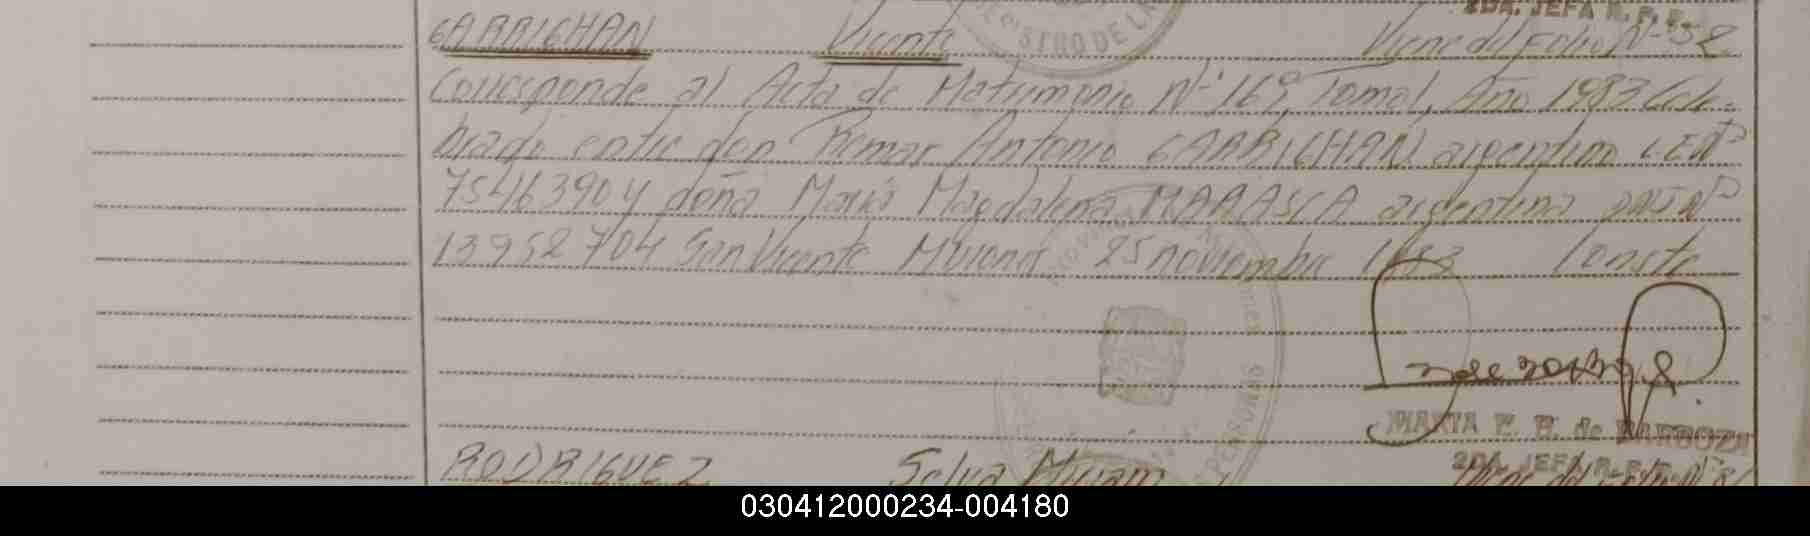 2DA. JEFA R. P. E.
GARRIGHAN Vicente Viene del Folio Nº 52
REGISTRO DE LA
Corresponde al Acta de Matrimonio Nº 169, Tomo I, Año 1983 Cele-
brado entre don Remar Antonio GARRIGHAN argentino LE Nº
7546390 y doña María Magdalena MARASCA argentina DNI Nº
13952704 San Vicente Misiones 25 noviembre 1983 Conste
MARTA de BARBOZA
2DA. JEFA R. P.
RODRIGUEZ Selva Miriam Viene del Folio Nº
PERSONAS
030412000234-004180